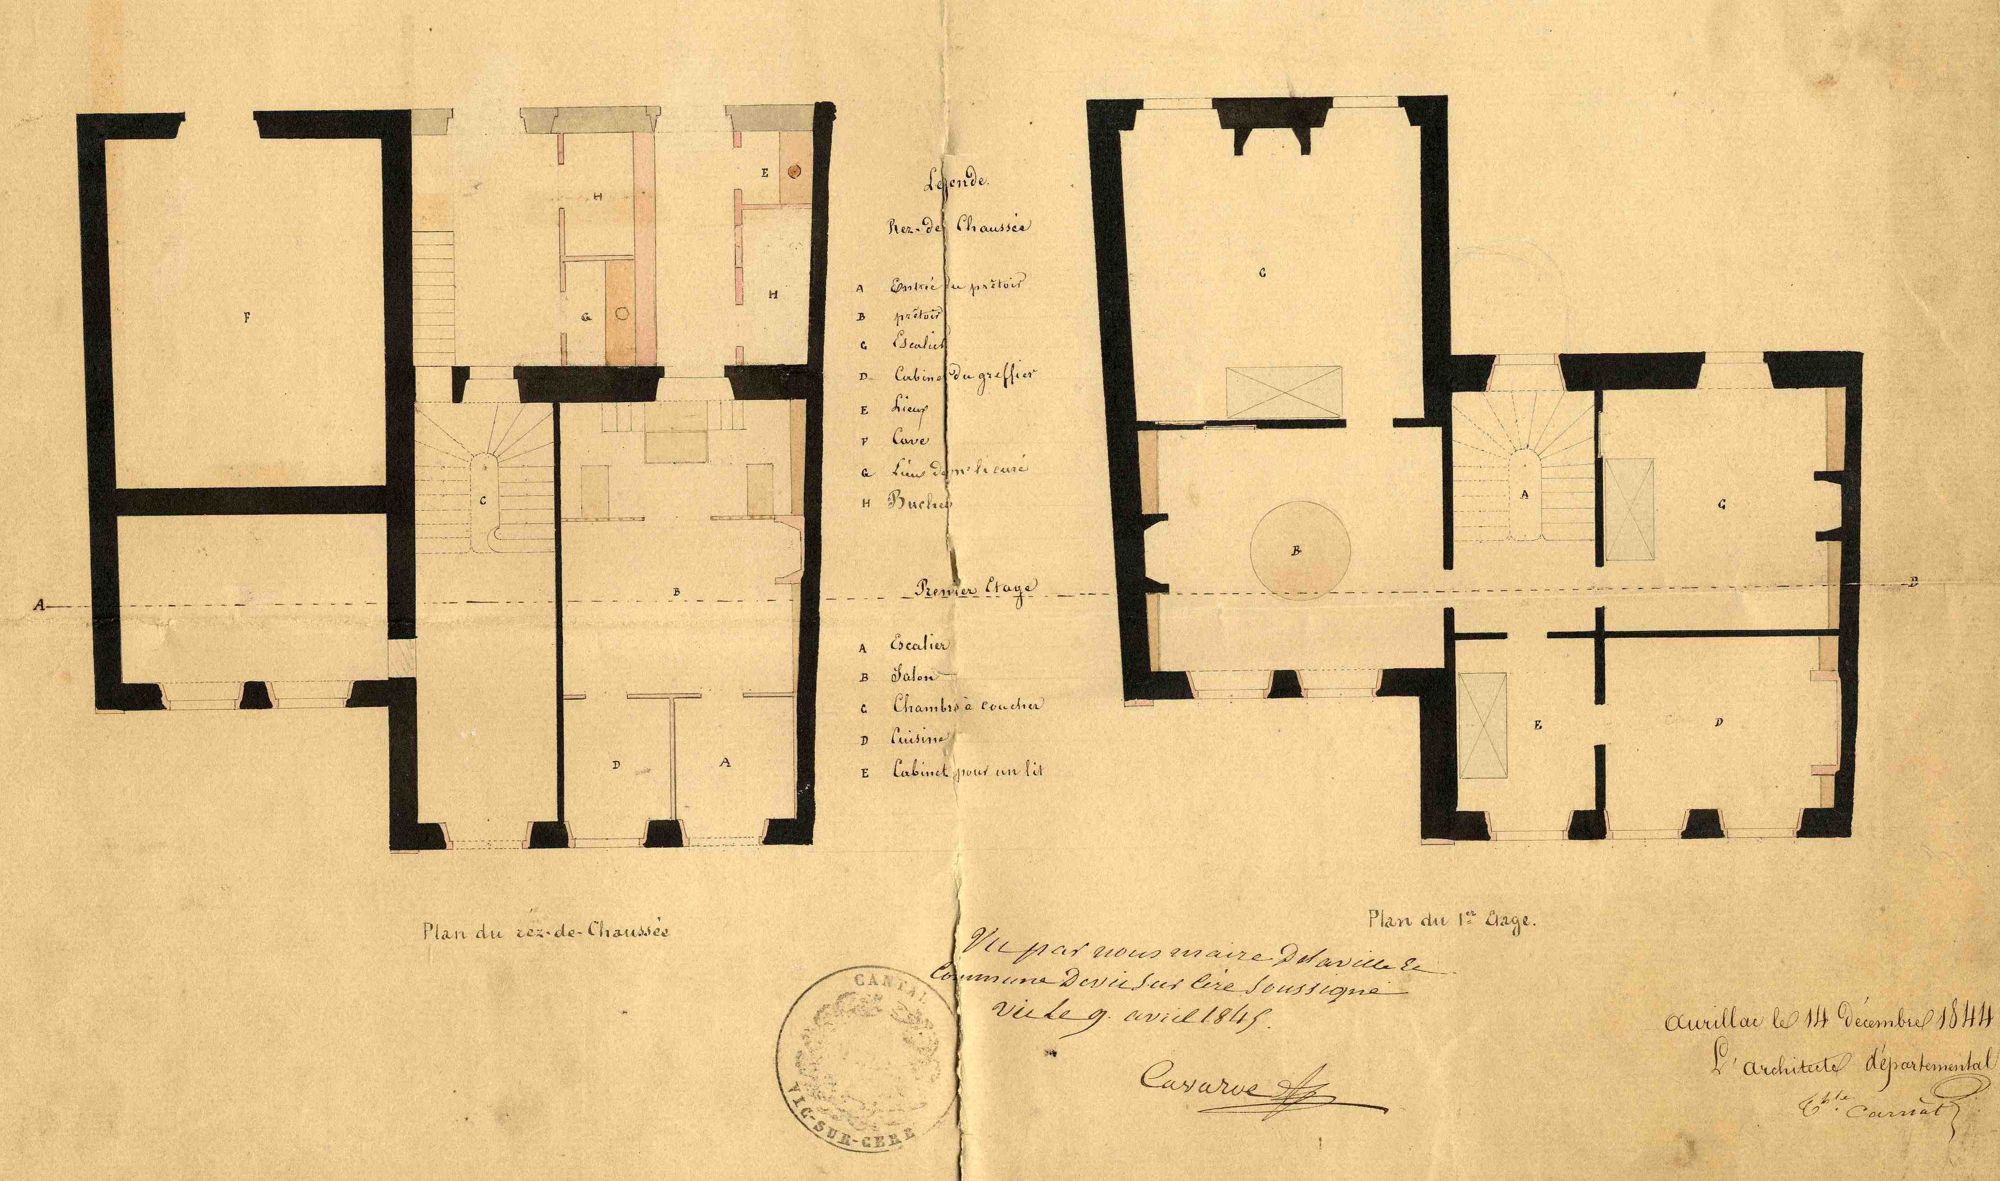 Légende.
Rez-de Chaussée
A Entrée du prétoir
B prétoir
C Escalier
D Cabinet du greffier
E Lieux
F Cave
G Lieux de mr le curé
H Bucher
Premier Etage
A Escalier
B Salon
C Chambre à coucher
D Cuisine
E Cabinet pour un lit
F
H
G
E
H
C
B
D
A
A
B
C
B
A
C
E
D
Plan du réz-de-Chaussée
Plan du 1er Etage.
Vu par nous maire De la ville et
Commune De vic Sur Cère Soussigné
Vic le 9 avril 1845.
CANTAL
VIC-SUR-CERE
Aurillac le 14 décembre 1844
L'architecte départemental